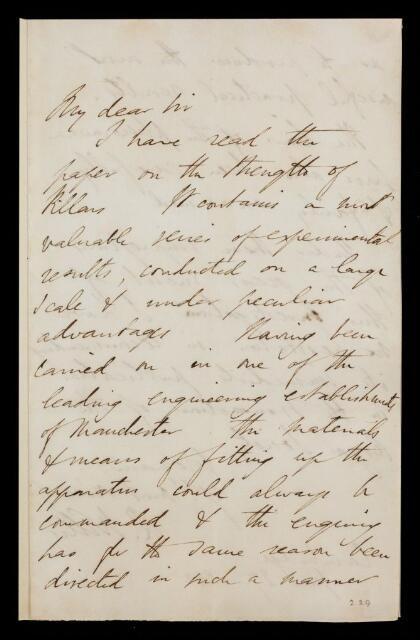 My dear Sir
I have read the
paper on the strength of
Pillars It contains a most
valuable series of experimental
results, conducted on a large
scale & under peculiar
advantages Having been
carried on in one of the
leading engineering establishments
of Manchester the materials
& means of fitting up the
apparatus could always be
commanded & the enquiry
has for the same reason been
directed in such a manner
229